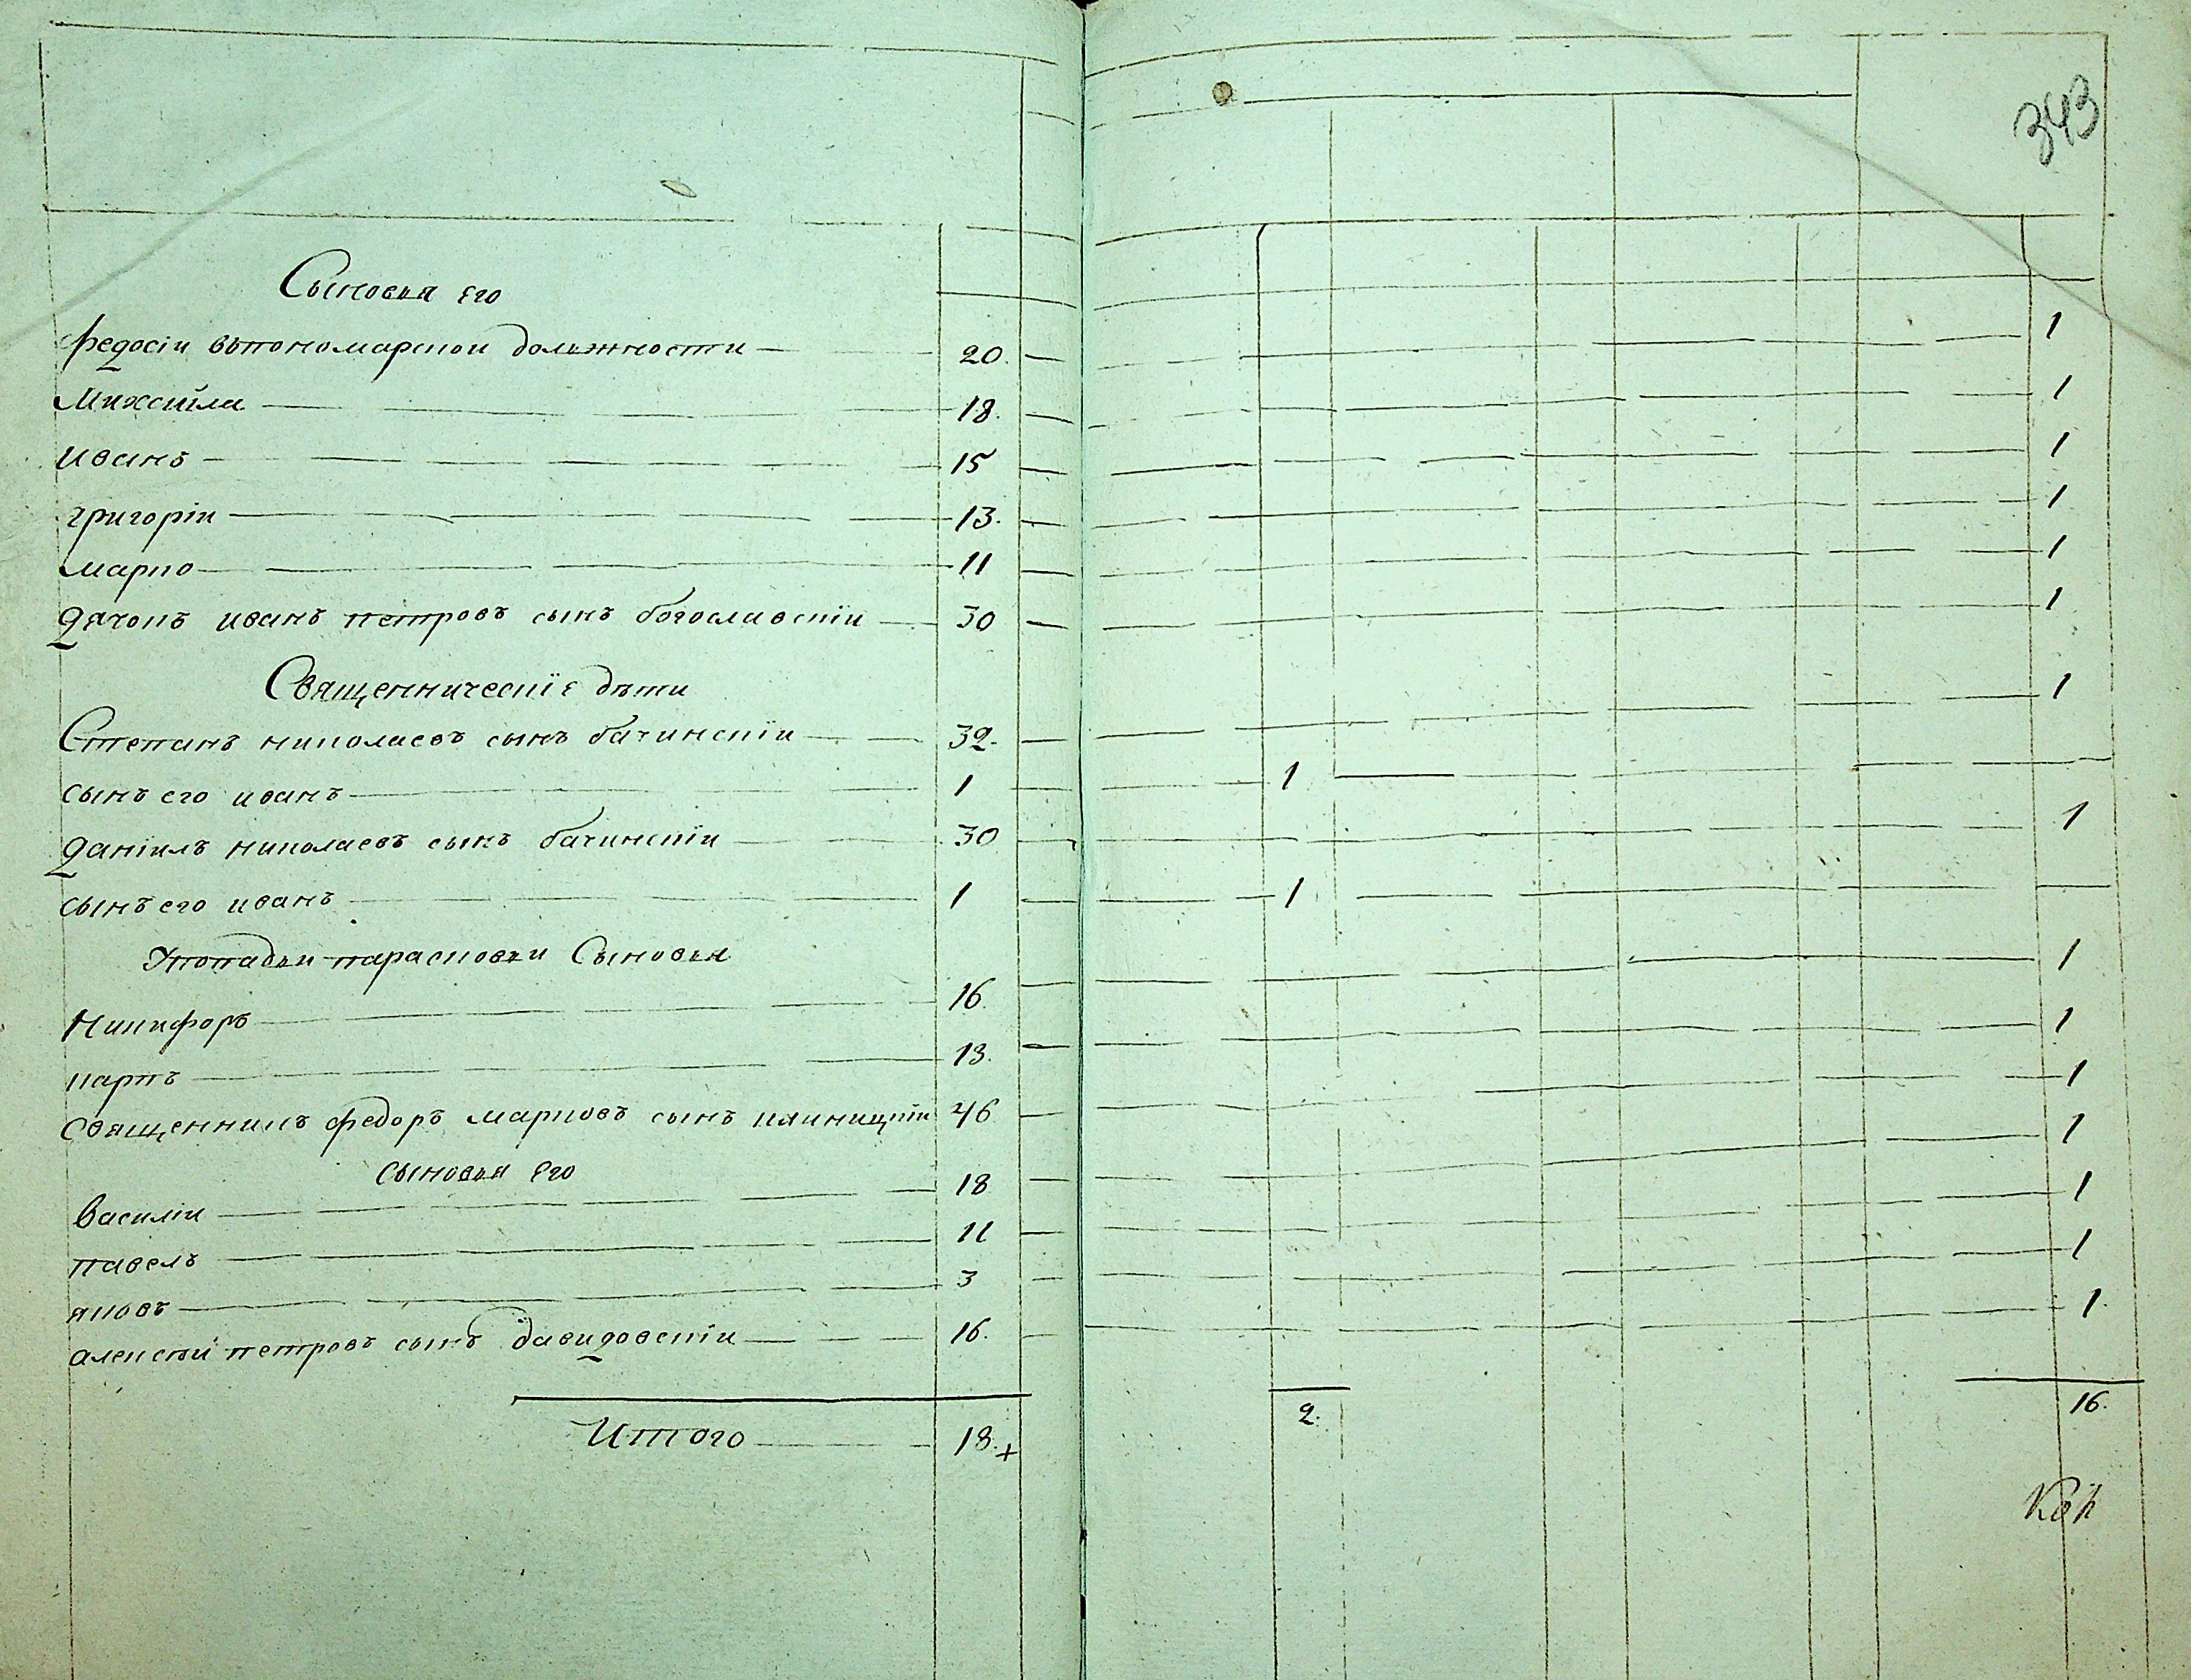 343
Сыновья его
федосіи вьпономарской должности 20. 1
Михайла 18. 1
иванъ 15 1
григоріи 13. 1
марко 11 1
дячокъ иванъ петровъ сынъ богославскіи 30 1
Священническіе дѣти 1
Степанъ николаевъ сынъ бачинскіи 32.
сынъ его иванъ 1 1
даніилъ николаевъ сынъ бачинскіи 30 1
сынъ его иванъ 1 1
Упопадьи парасковьи Сыновья 1
Никифоръ 16. 1
карпъ 13. 1
священникъ федоръ марковъ сынъ клиницкіи 46 1
сыновья его
василіи 18 1
павелъ 11 1
яковъ 3 1.
алексѣй петровъ сынъ давидовскіи 16.
Итого 18.+ 2. 16.